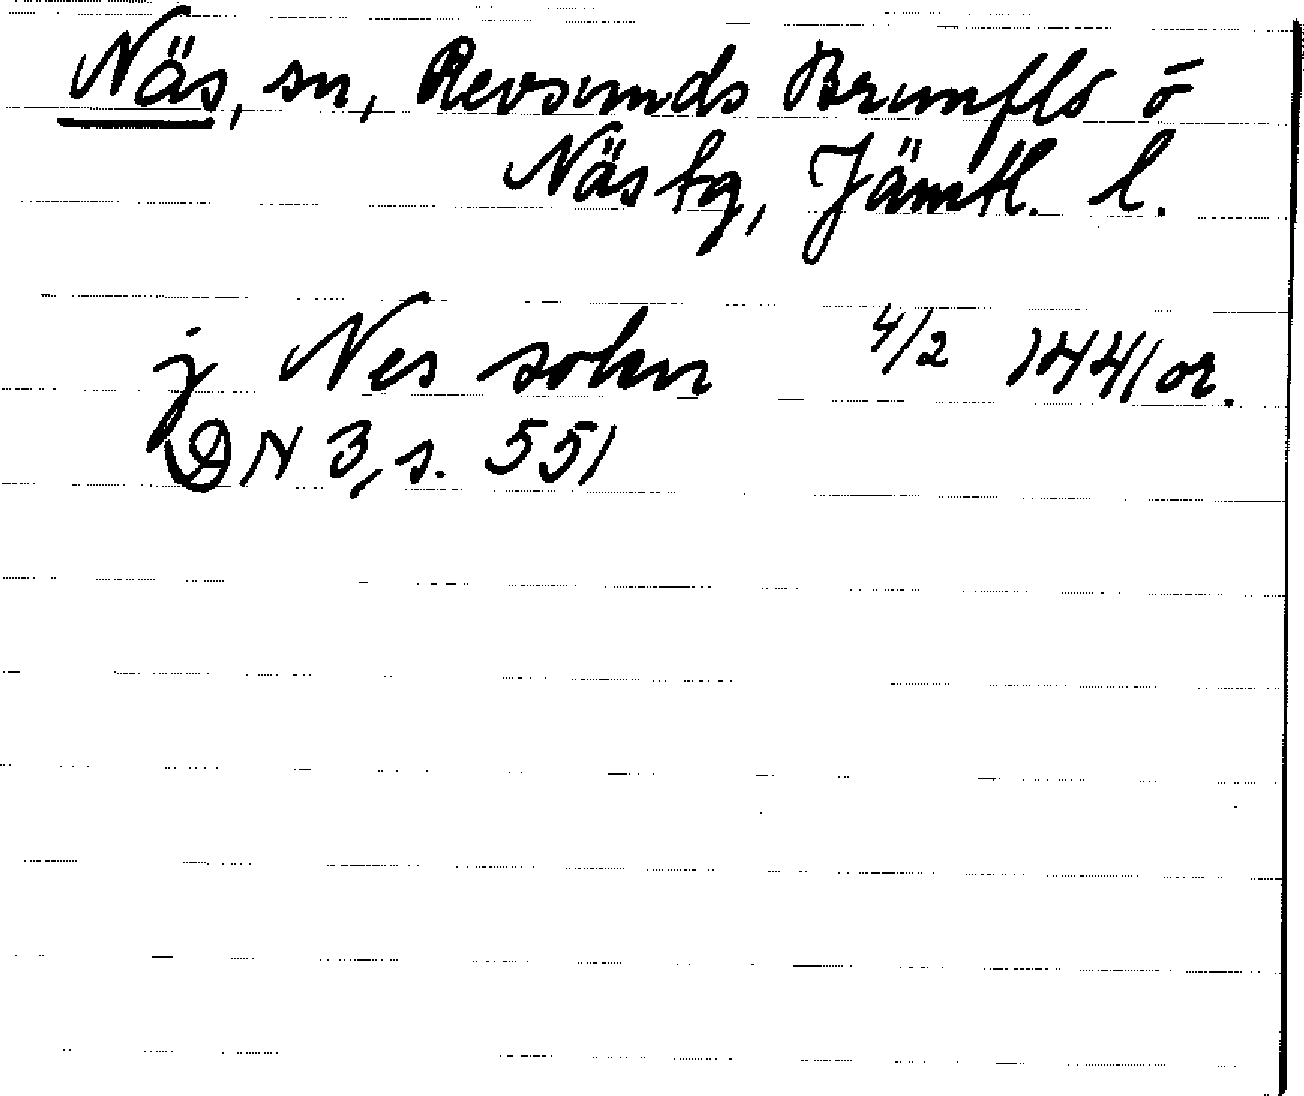 Näs, sn, Revsunds Brunflo ō
Näs tg, Jämtl. l.
j Nes sokn 4/2 1441 or.
DN 3, s. 551